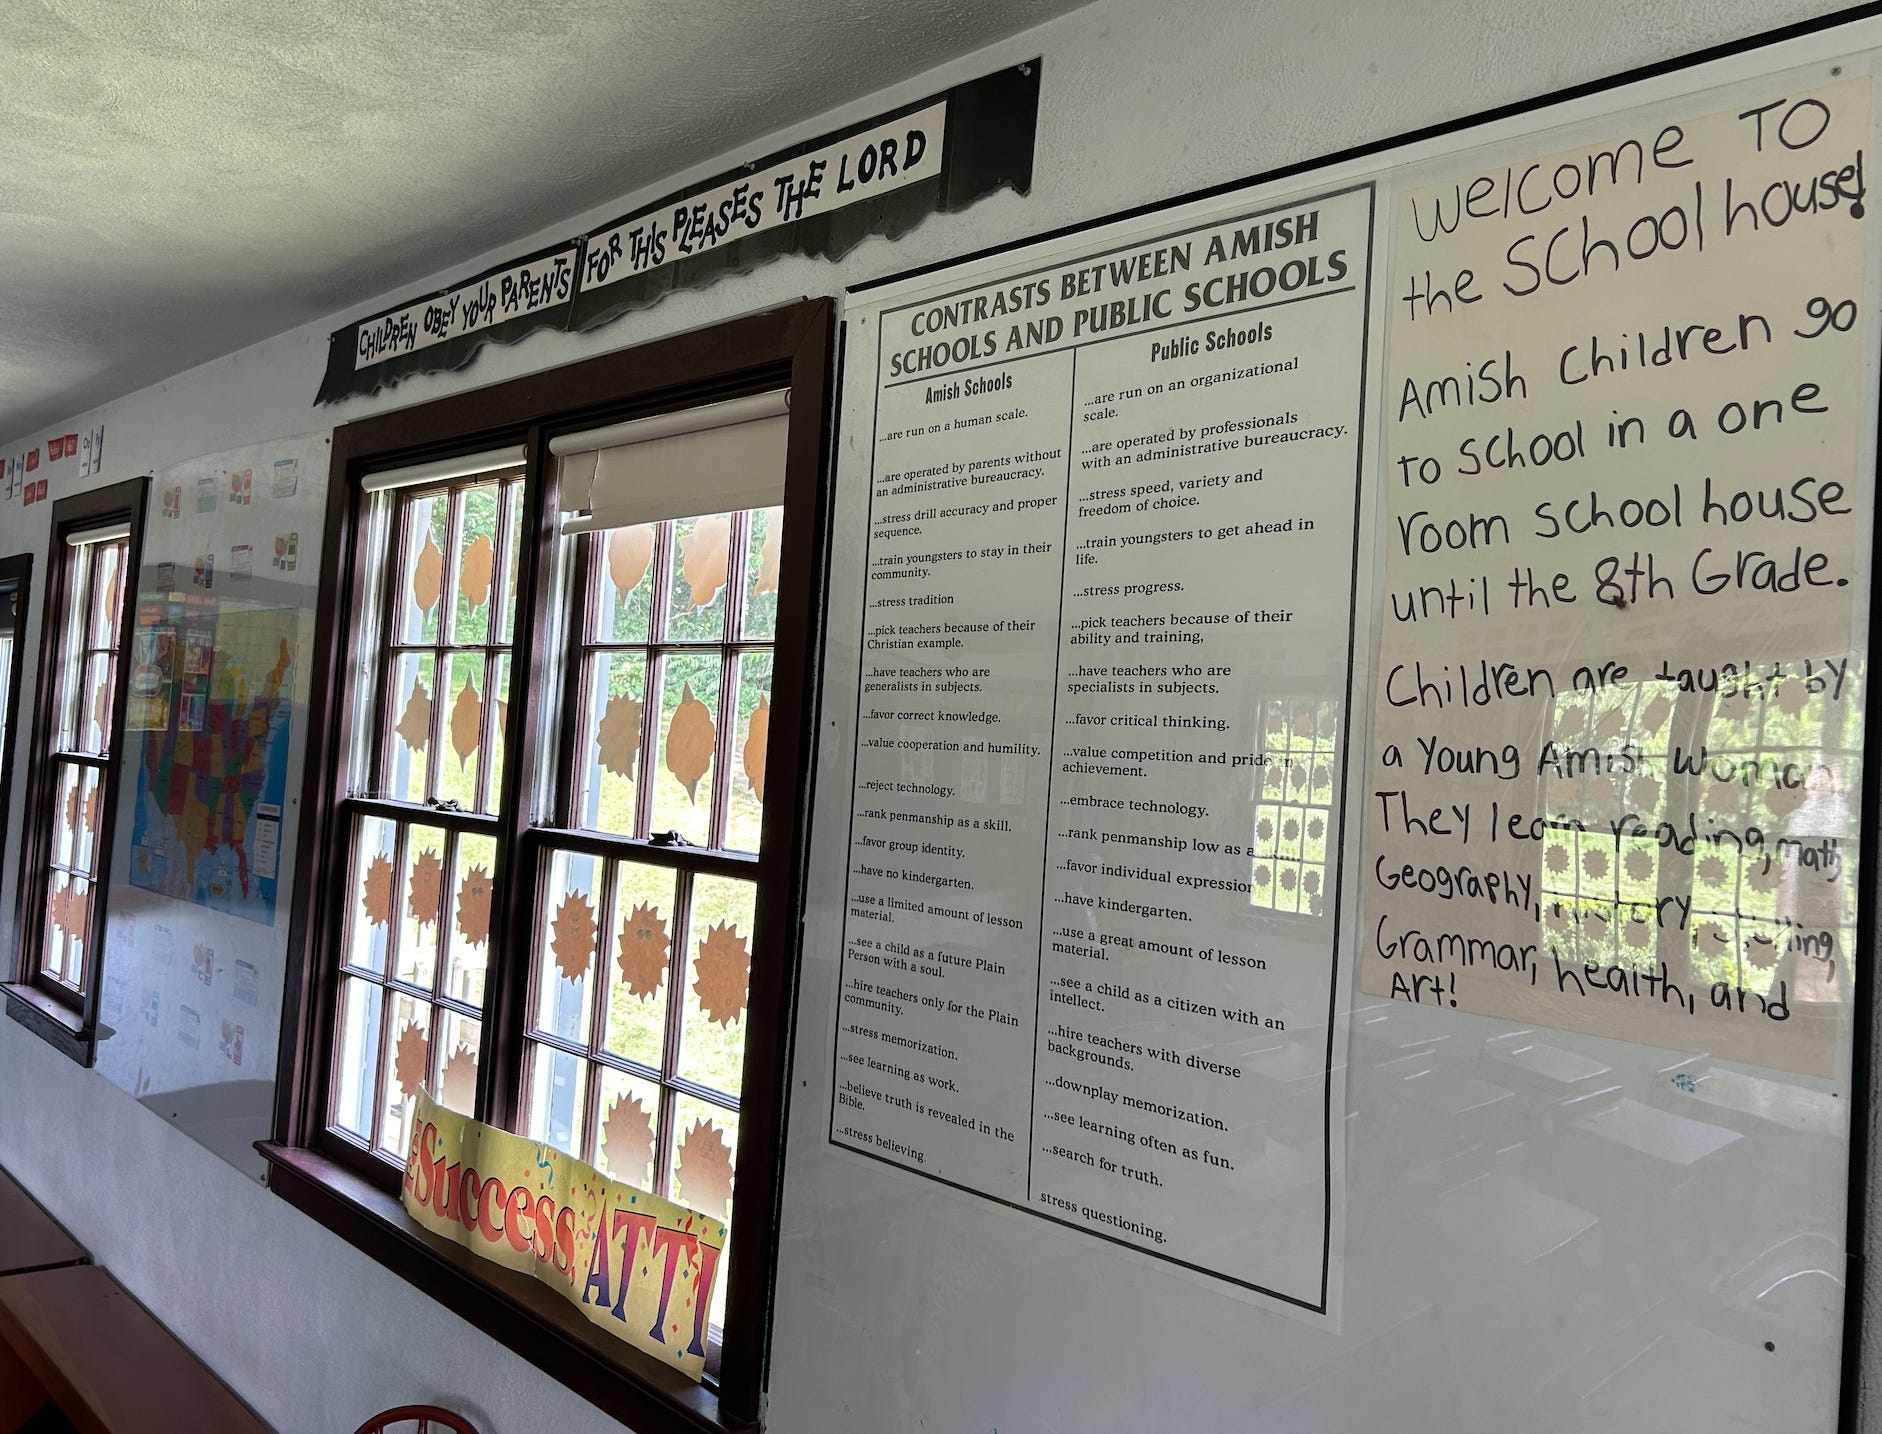 CHILDREN OBEY YOUR PARENTS FOR THIS PLEASES THE LORD
CONTRASTS BETWEEN AMISH
SCHOOLS AND PUBLIC SCHOOLS
Amish Schools
...are run on a human scale.
...are operated by parents without
an administrative bureaucracy.
...stress drill accuracy and proper
sequence.
...train youngsters to stay in their
community.
...stress tradition
...pick teachers because of their
Christian example.
...have teachers who are
generalists in subjects.
...favor correct knowledge.
...value cooperation and humility.
...reject technology.
...rank penmanship as a skill.
...favor group identity.
...have no kindergarten.
...use a limited amount of lesson
material.
...see a child as a future Plain
Person with a soul.
...hire teachers only for the Plain
community.
...stress memorization.
...see learning as work.
...believe truth is revealed in the
Bible.
...stress believing.
Public Schools
...are run on an organizational
scale.
...are operated by professionals
with an administrative bureaucracy.
...stress speed, variety and
freedom of choice.
...train youngsters to get ahead in
life.
...stress progress.
...pick teachers because of their
ability and training,
...have teachers who are
specialists in subjects.
...favor critical thinking.
...value competition and pride in
achievement.
...embrace technology.
...rank penmanship low as a
...favor individual expression
...have kindergarten.
...use a great amount of lesson
material.
...see a child as a citizen with an
intellect.
...hire teachers with diverse
backgrounds.
...downplay memorization.
...see learning often as fun.
...search for truth.
stress questioning.
Welcome TO
the School house!
Amish Children go
to School in a one
room school house
until the 8th Grade.
Children are taught by
a Young Amish Woman
They learn reading, Math,
Geography, history,
Grammar, health, and
Art!
Success, ATTI